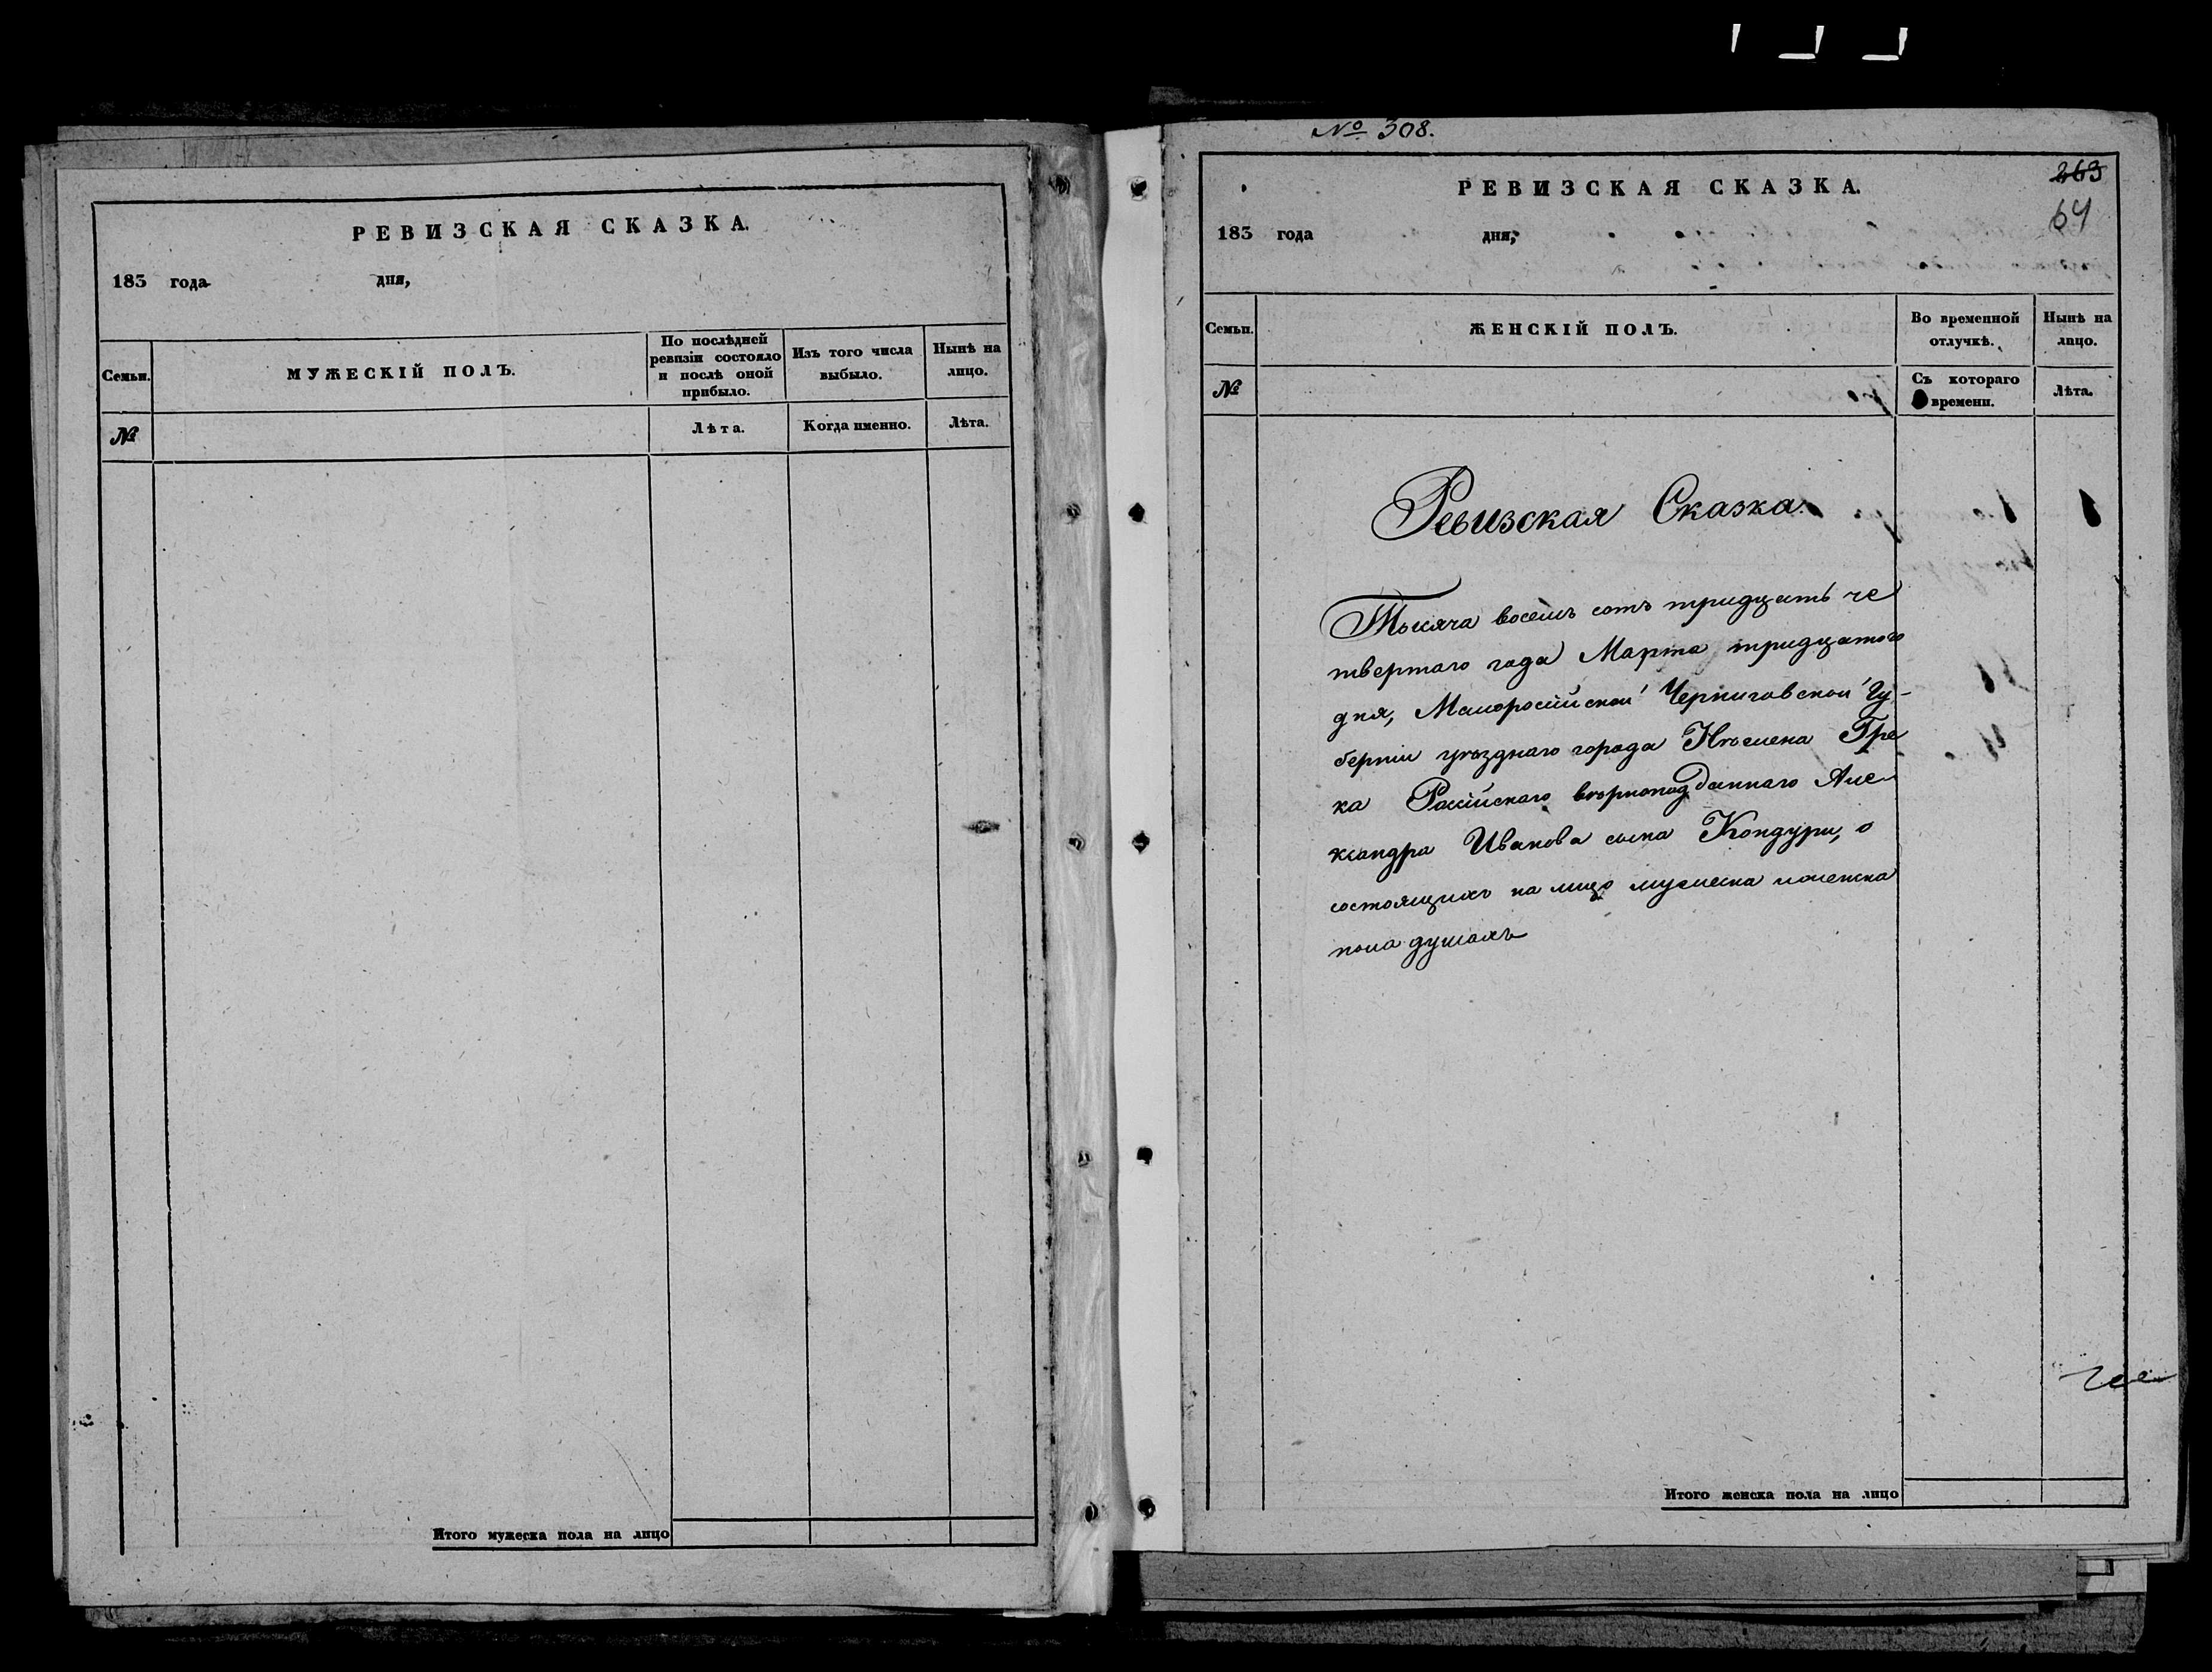 РЕВИЗСКАЯ СКАЗКА.
183 года дня,
Семьи.
МУЖЕСКІЙ ПОЛЪ.
По послѣдней
ревизіи состояло
и послѣ оной
прибыло.
Изъ того числа
выбыло.
Нынѣ на
лицо.
№
Лѣта.
Когда именно.
Лѣта.
Итого мужеска пола на лицо
№ 308.
РЕВИЗСКАЯ СКАЗКА.
263
64
183 года дня,
Семьи.
ЖЕНСКІЙ ПОЛЪ.
Во временной
отлучкѣ.
Нынѣ на
лицо.
№
Съ котораго
времени.
Лѣта.
Ревизская Сказка
Тысяча восемъ сотъ тридцать че
твертаго года Марта тридцатого
дня, Малоросійской Черниговской Гу-
берніи уѣзднаго города Нѣжена Гре
ка Російскаго вѣрноподданнаго Але-
ксандра Иванова сына Кондури, о
состоящихъ на лицо мужеска и женска
пола душахъ
Итого женска пола на лицо